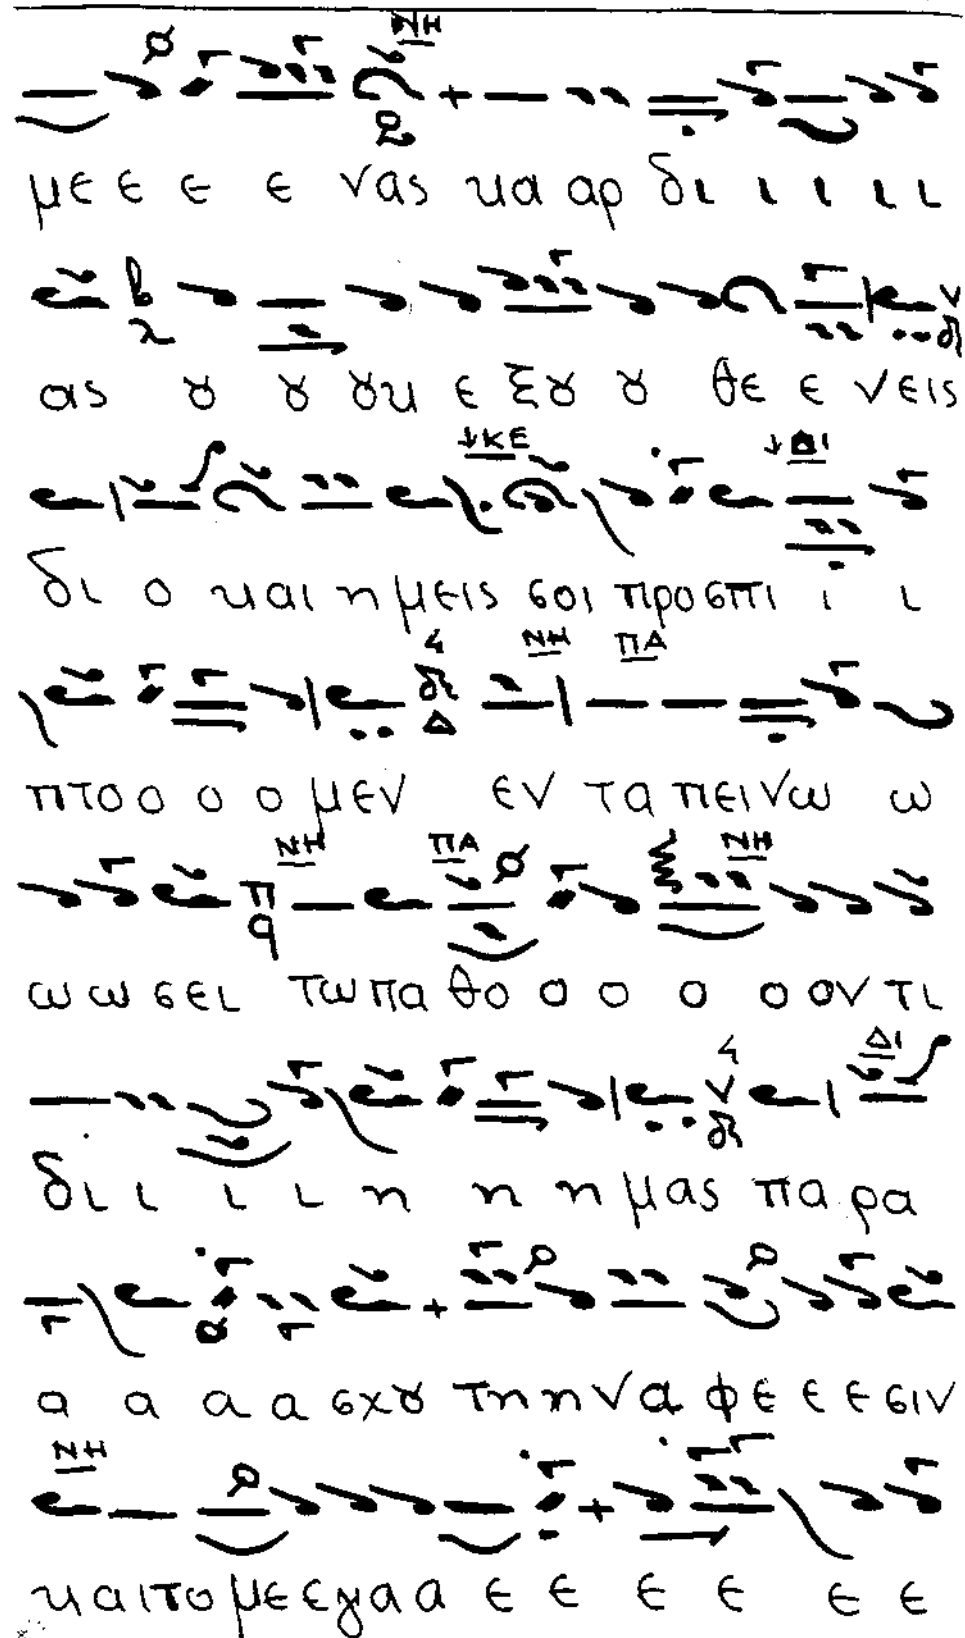 ΝΗ
με ε ε ε νας κα αρ δι ι ι ι ι
ας ȣ ȣ ȣκ ε ξȣ ȣ θε ε νεις
ΚΕ ΔΙ
δι ο και η μεις σοι προσπι ι ι
ΝΗ ΠΑ
πτο ο ο ο μεν εν τα πεινω ω
ΝΗ ΠΑ ΝΗ
ω ω σει τω πα θο ο ο ο ο ον τι
ΔΙ
δι ι ι ι η η η μας πα ρα
α α α α σχȣ τη η ν α φε ε ε σιν
ΝΗ
και το με ε γα α ε ε ε ε ε ε